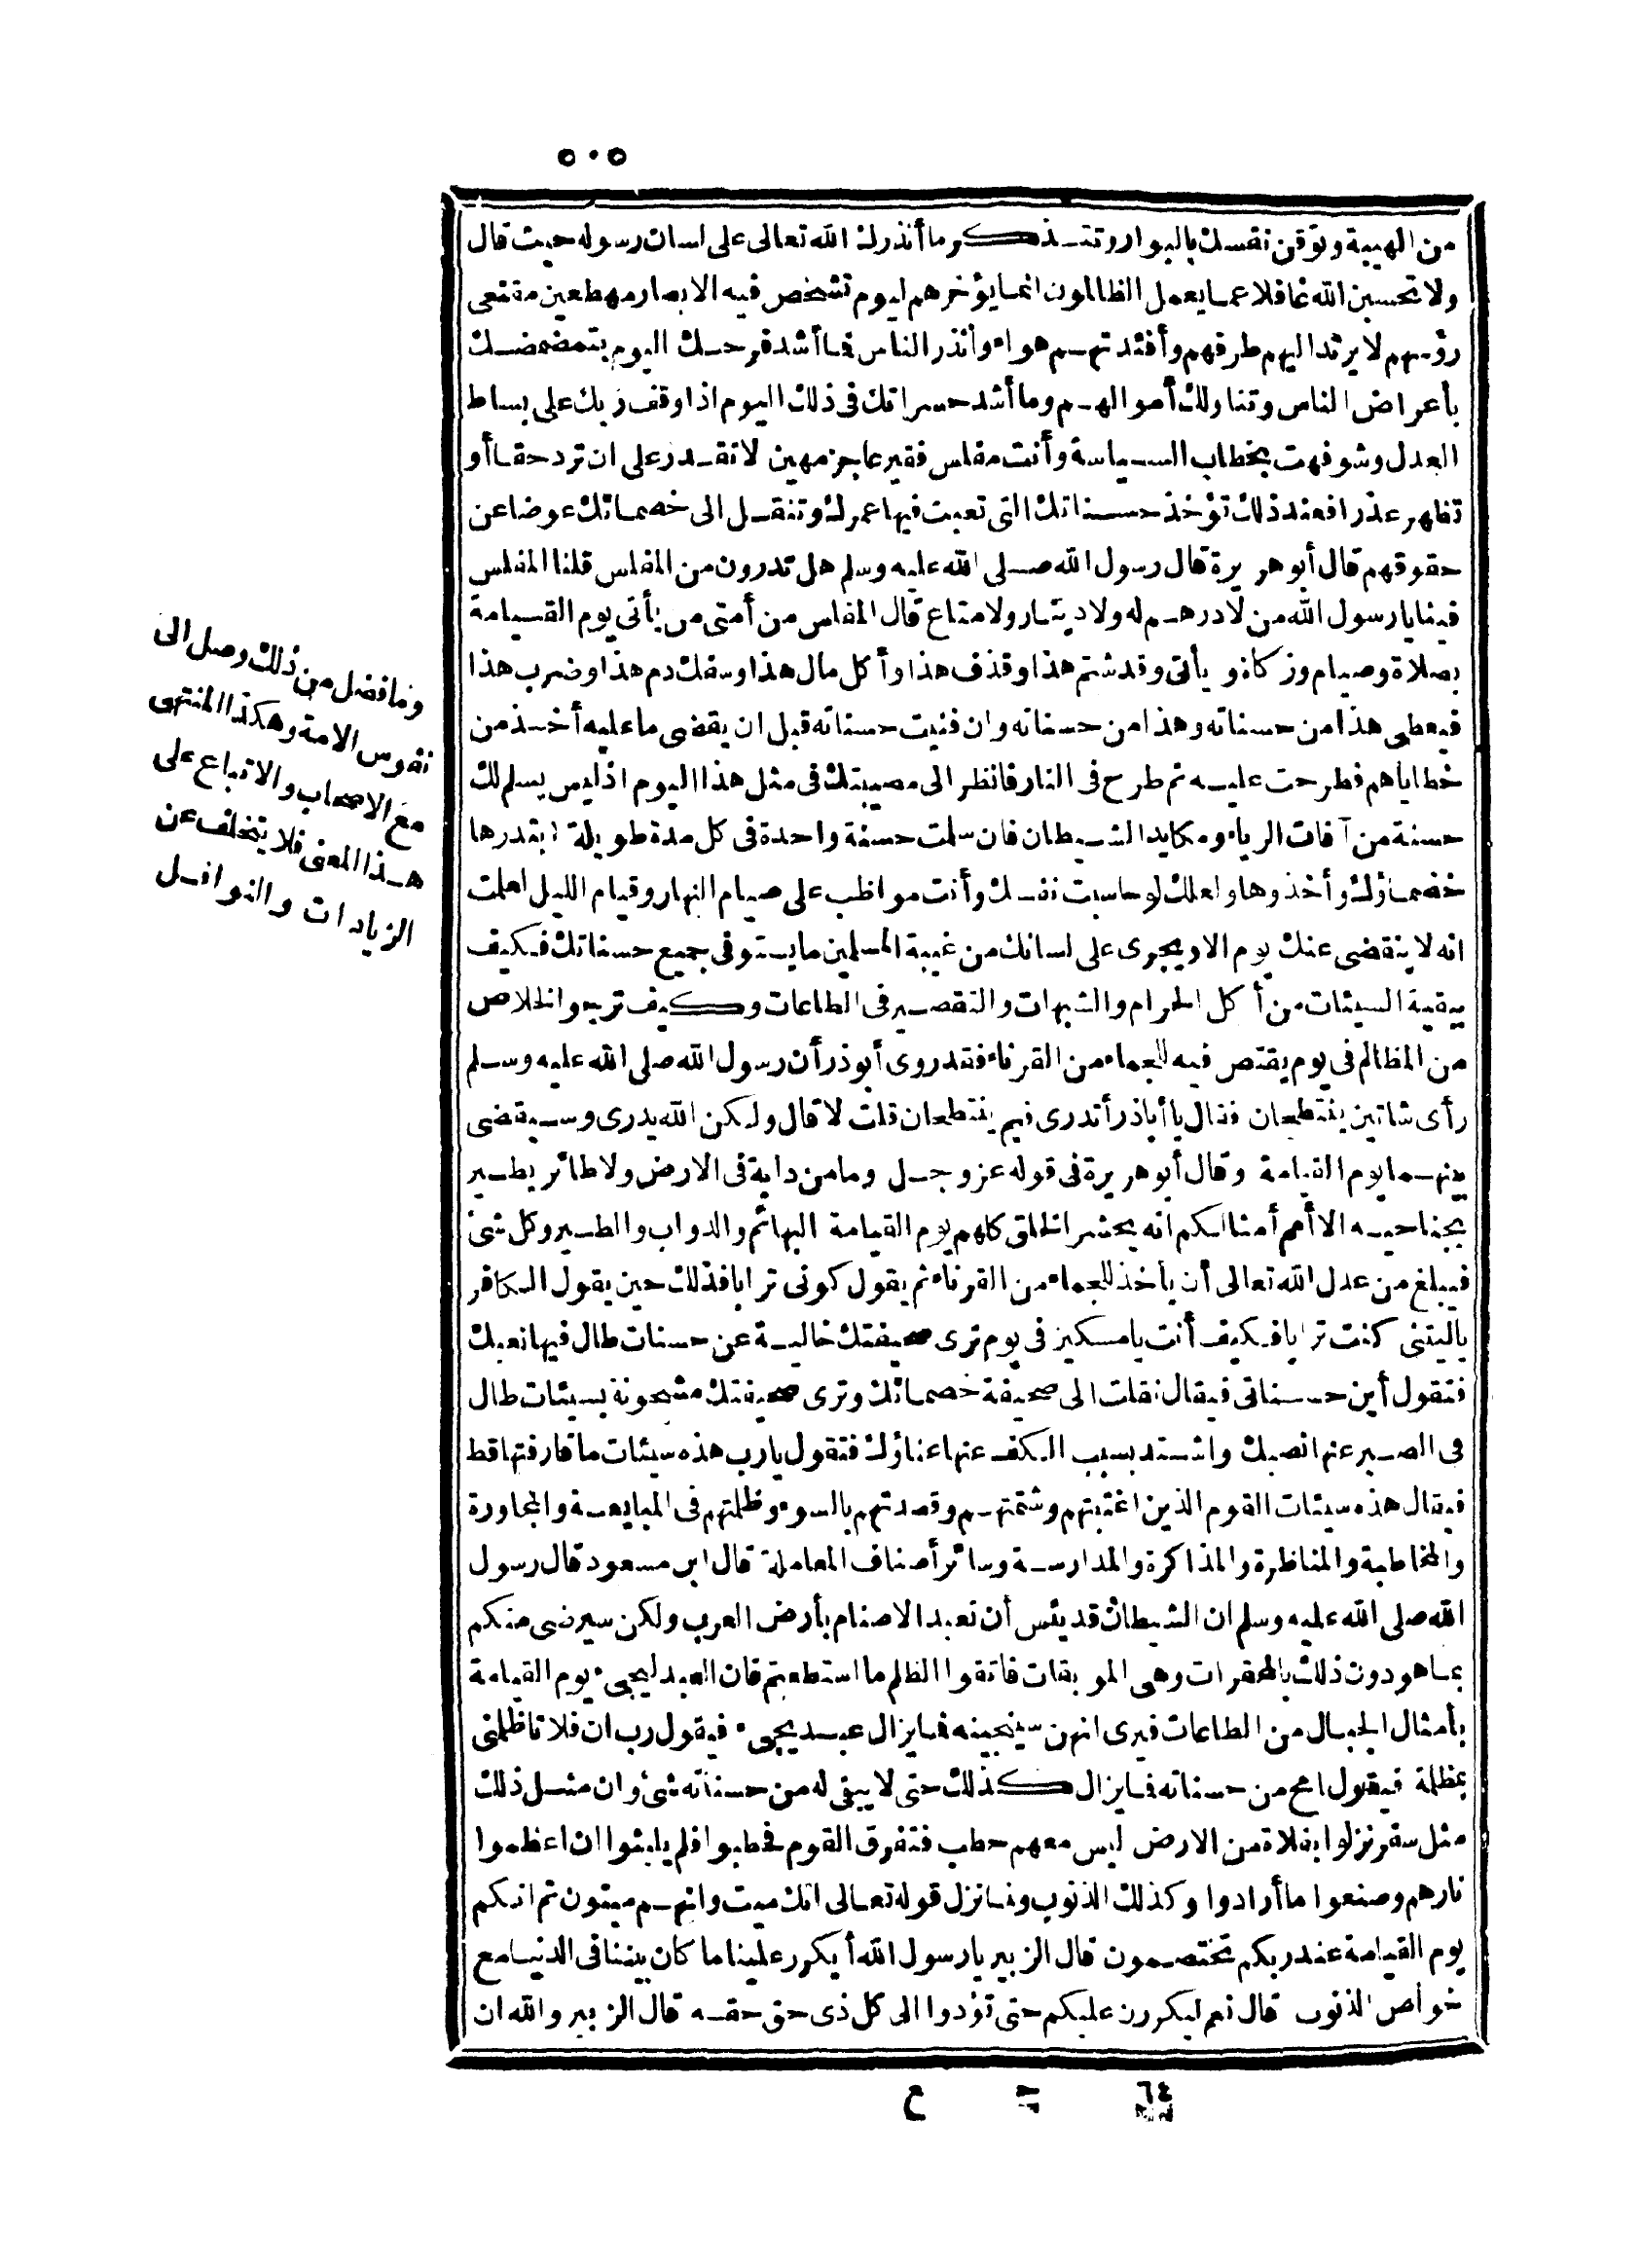 ٥٠٥
من الهيبة وتوقن نفسك بالبوار وتتذكر ما أنذرك الله تعالى على لسان رسوله حيث قال
ولا تحسبن الله غافلا عما يعمل الظالمون انما يؤخرهم ليوم تشخص فيه الابصار مهطعين مقنعى
رؤسهم لا يرتد اليهم طرفهم وأفئدتهم هواء وأنذر الناس فما أشد فرحك اليوم بتمضمضك
بأعراض الناس وتناولك أموالهم وما أشد حسراتك فى ذلك اليوم اذا وقف ربك على بساط
العدل وشوفهت بخطاب السياسة وأنت مفلس فقير عاجز مهين لا تقدر على ان ترد حقا أو
تظهر عذرا فعند ذلك تؤخذ حسناتك التى تعبت فيها عمرك وتنقل الى خصمائك عوضا عن
حقوقهم قال أبو هريرة قال رسول الله صلى الله عليه وسلم هل تدرون من المفلس قلنا المفلس
فينا يا رسول الله من لا درهم له ولا دينار ولا متاع قال المفلس من أمتى من يأتى يوم القيامة
بصلاة وصيام وزكاة ويأتى وقد شتم هذا وقذف هذا وأكل مال هذا وسفك دم هذا وضرب هذا
فيعطى هذا من حسناته وهذا من حسناته وان فنيت حسناته قبل ان يقضى ما عليه أخذ من
خطاياهم فطرحت عليه ثم طرح فى النار فانظر الى مصيبتك فى مثل هذا اليوم اذ ليس يسلم لك
حسنة من آفات الرياء ومكايد الشيطان فان سلمت حسنة واحدة فى كل مدة طويلة ابتدرها
خصماؤك وأخذوها ولعلك لو حاسبت نفسك وأنت مواظب على صيام النهار وقيام الليل لعلمت
انه لا ينقضى عنك يوم الا ويجرى على لسانك من غيبة المسلمين ما يستوفى جميع حسناتك فكيف
ببقية السيئات من أكل الحرام والشبهات والتقصير فى الطاعات وكيف ترجو الخلاص
من المظالم فى يوم يقتص فيه للجماء من القرناء فقد روى أبو ذر أن رسول الله صلى الله عليه وسلم
رأى شاتين ينتطحان فقال يا أباذر أتدرى فيم ينتطحان قلت لا قال ولكن الله يدرى وسيقضى
بينهما يوم القيامة وقال أبو هريرة فى قوله عز وجل وما من دابة فى الارض ولا طائر يطير
بجناحيه الا أمم أمثالكم انه يحشر الخلق كلهم يوم القيامة البهائم والدواب والطير وكل شئ
فيبلغ من عدل الله تعالى أن يأخذ للجماء من القرناء ثم يقول كونى ترابا فذلك حين يقول الكافر
ياليتنى كنت ترابا فكيف أنت يا مسكين فى يوم ترى صحيفتك خالية عن حسنات طال فيها تعبك
فتقول أين حسناتى فيقال نقلت الى صحيفة خصمائك وترى صحيفتك مشحونة بسيئات طال
فى الصبر عنها نصبك واشتد بسبب الكف عنها عناؤك فتقول يا رب هذه سيئات ما قارفتها قط
فيقال هذه سيئات القوم الذين اغتبتهم وشتمتهم وقصدتهم بالسوء وظلمتهم فى المبايعة والمجاورة
والمخاطبة والمناظرة والمذاكرة والمدارسة وسائر أصناف المعاملة قال ابن مسعود قال رسول
الله صلى الله عليه وسلم ان الشيطان قد يئس أن تعبد الاصنام بأرض العرب ولكن سيرضى منكم
بما هو دون ذلك بالمحقرات وهى الموبقات فاتقوا الظلم ما استطعتم فان العبد ليجىء يوم القيامة
بأمثال الجبال من الطاعات فيرى انهن سينجينه فما يزال عبد يجىء فيقول رب ان فلانا ظلمنى
بمظلمة فيقول امح من حسناته فما يزال كذلك حتى لا يبقى له من حسناته شئ وان مثل ذلك
مثل سفر نزلوا بفلاة من الارض ليس معهم حطب فتفرق القوم فحطبوا فلم يلبثوا ان اعظموا
نارهم وصنعوا ما أرادوا وكذلك الذنوب ولما نزل قوله تعالى انك ميت وانهم ميتون ثم انكم
يوم القيامة عند ربكم تختصمون قال الزبير يا رسول الله أيكرر علينا ما كان بيننا فى الدنيا مع
خواص الذنوب قال نعم ليكررن عليكم حتى تؤدوا الى كل ذى حق حقه قال الزبير والله ان
وما فضل من ذلك وصل الى
نفوس الامة وهكذا المنتهى
مع الاصحاب والاتباع على
هذا المعنى فلا يتخلف عن
الزيادات والنوافل
٦٤
ع